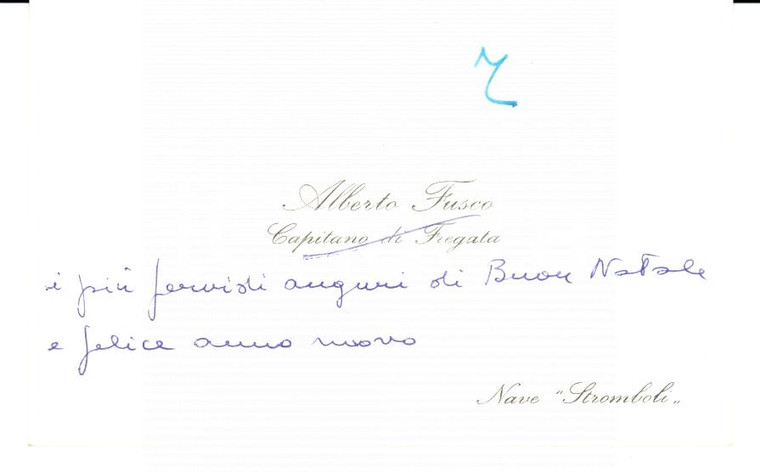 Alberto Fusco
Capitano di Fregata
i più fervidi auguri di Buon Natale
e felice anno nuovo
Nave "Stromboli"